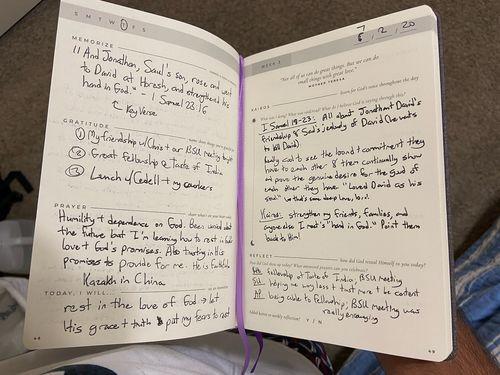 S M T W T F S
MEMORIZE
"And Jonathan, Saul's son, rose and went
to David at Horesh, and strengthened his
hand in God." - 1 Samuel 23:16
Key Verse
GRATITUDE
① My friendship w/ Christ + our BSU meeting
② Great fellowship @ Taste of India
③ Lunch w/ Cedell + my coworkers
PRAYER
Humility + dependence on God. Been worried about
the future but I'm learning how to rest in God's
love + God's promises. Also trusting in his
promises to provide for me. He is faithful.
Kazakh in China
TODAY, I WILL...
rest in the love of God → let
His grace + truth put my fears to rest
48
WEEK 3
7
2, 20
"Not all of us can do great things. But we can do
small things with great love."
MOTHER TERESA
KAIROS
listen for God's voice throughout the day
I Samuel 18-23: All about Jonathan + David's
friendship & Saul's jealousy of David (he wants
to kill David)
Really cool to see the bond + commitment they
have to each other & them continually show
and prove the genuine desire for the good of
each other they have "Loved David as his
soul"
Kairos: strengthen my friends, families, and
anyone else I meet's "hand in God." Point them
back to Him!
REFLECT
how did God reveal Himself to you today?
fellowship at Taste of India, BSU meeting
helping me worry less + trust more + be content
being able to fellowship, BSU meeting was
really encouraging
Added kairos to weekly reflection? Y / N
49